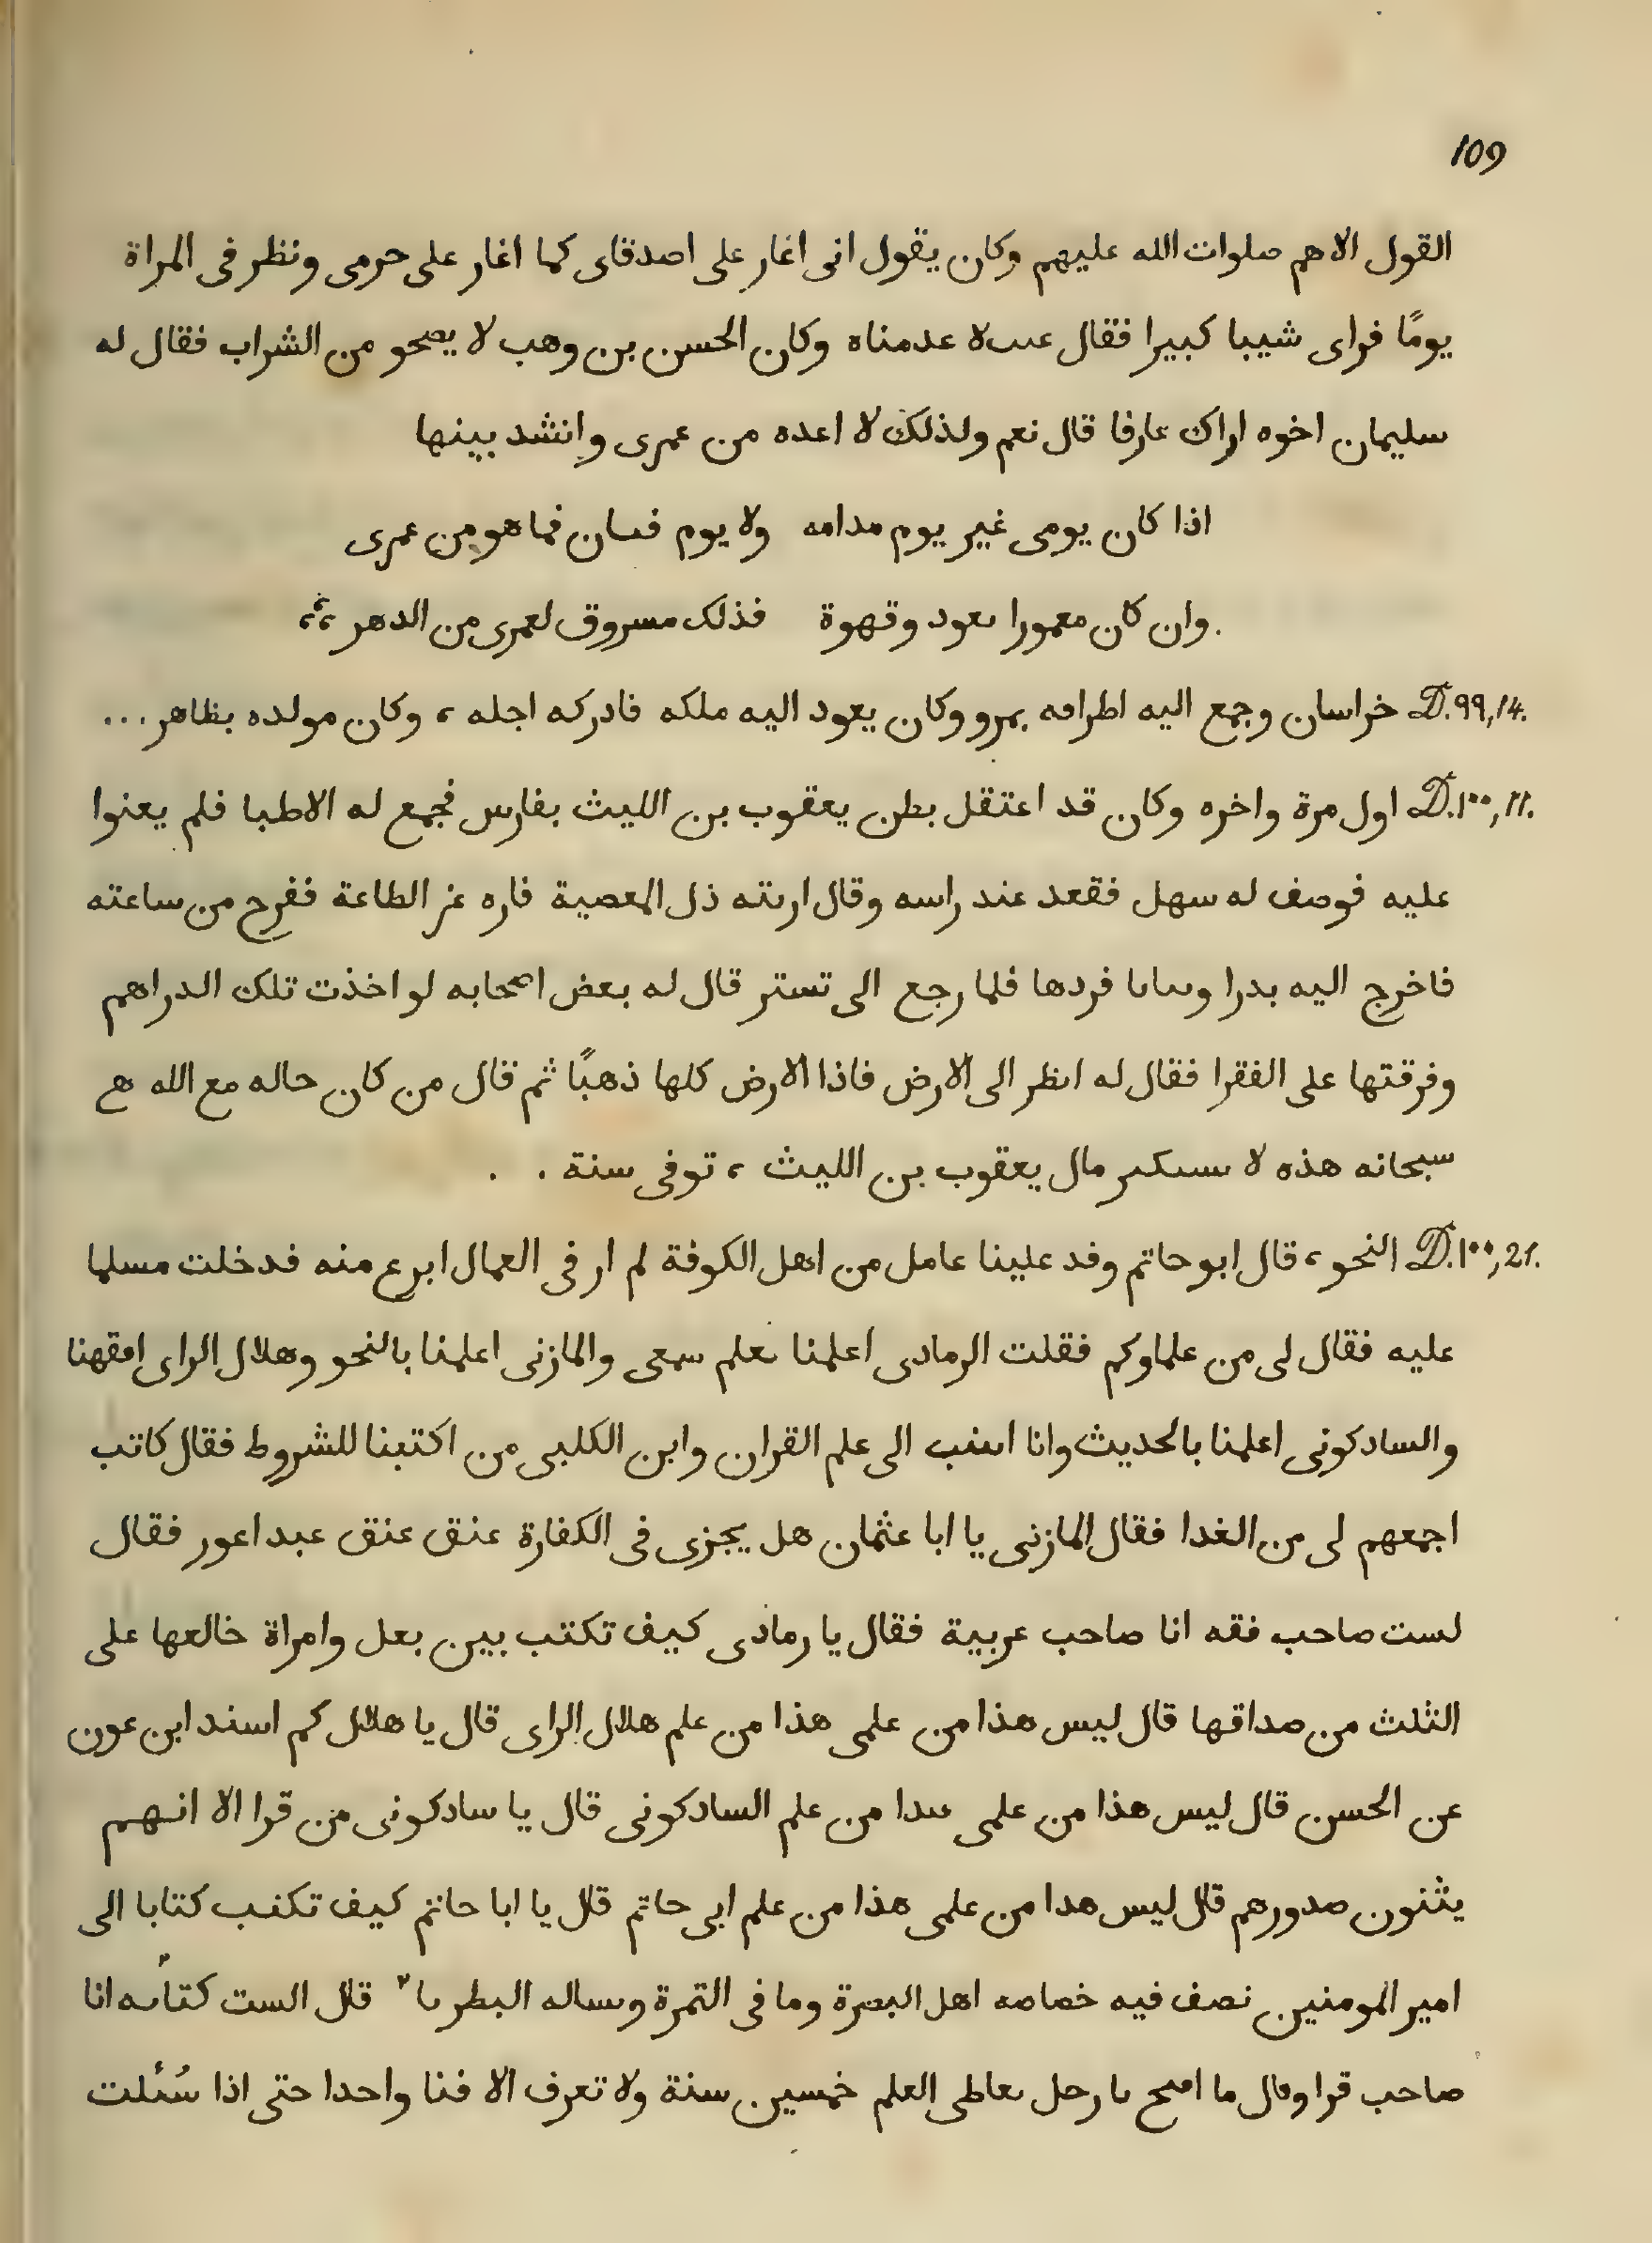 109
القول الاهم صلوات الله عليهم وكان يقول انى اغار على اصدقاى كما اغار على حرمى ونظر فى المراة
يومًا فراى شيبا كبيرا فقال عىىلا عدمناه وكان الحسن بن وهب لا يصحو من الشراب فقال له
سليمان اخوه اراك عارفا قال نعم ولذلك لا اعده من عمرى وانشد بينها
اذا كان يومى غير يوم مدامه ولا يوم فىىان فما هو من عمرى
وان كان معمورا ىعود وقهوة فذلك مسروق لعمرى من الدهر
D.99,14. خراسان وجمع اليه اطرافه بمرو وكان يعود اليه ملكه فادركه اجله ، وكان مولده بظاهر ...
D.1٠٠,11. اول مرة واخره وكان قد اعتقل بطن يعقوب بن الليث بفارس فجمع له الاطبا فلم يعنوا
عليه فوصف له سهل فقعد عند راسه وقال ارىته ذل المعصية فاره عز الطاعة ففرح من ساعته
فاخرج اليه بدرا وىىاىا فردها فلما رجع الى تستر قال له بعض اصحابه لو اخذت تلك الدراهم
وفرقتها على الفقرا فقال له انظر الى الارض فاذا الارض كلها ذهبًا ثم قال من كان حاله مع الله
سبحانه هذه لا ىسىكىر مال يعقوب بن الليث ، توفى سنة . .
D.1٠٠,21. النحو ، قال ابو حاتم وفد علينا عامل من اهل الكوفة لم ار فى العمال ابرع منه فدخلت مسلما
عليه فقال لى من علماوكم فقلت الرمادى اعلمنا ىعلم سمعى والمازنى اعلمنا بالنحو وهلال الراى افقهنا
والسادكونى اعلمنا بالحديث وانا اىىىب الى علم القران وابن الكلبى من اكتبنا للشروط فقال كاتب
اجمعهم لى من الغدا فقال المازنى يا ابا عثمان هل يجزى فى الكفارة عنق عنق عبد اعور فقال
لست صاحب فقه انا صاحب عربية فقال يا رمادى كيف تكتب بين بعل وامراة خالعها على
الثلث من صداقها قال ليس هذا من علمى هذا من علم هلال الراى قال يا هلال كم اسند ابن عون
عن الحسن قال ليس هذا من علمى هدا من علم السادكونى قال يا سادكونى من قرا الا انهم
يثنون صدورهم قال ليس هدا من علمى هذا من علم ابى حاتم قال يا ابا حاتم كيف تكتب كتابا الى
امير المومنين نصف فيه خصاصه اهل البصرة وما فى التمرة وىساله البطر ىا٢ قال الست كتاىه انا
صاحب قرا وقال ما اقبح ىا رحل ىعاطى العلم خمسين سنة ولا تعرف الا فنا واحدا حتى اذا سُئلت